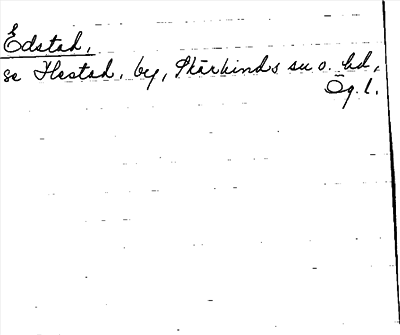 Edstad,
se Hestad, by, Skärkinds sn o. hd,
Ög. l.